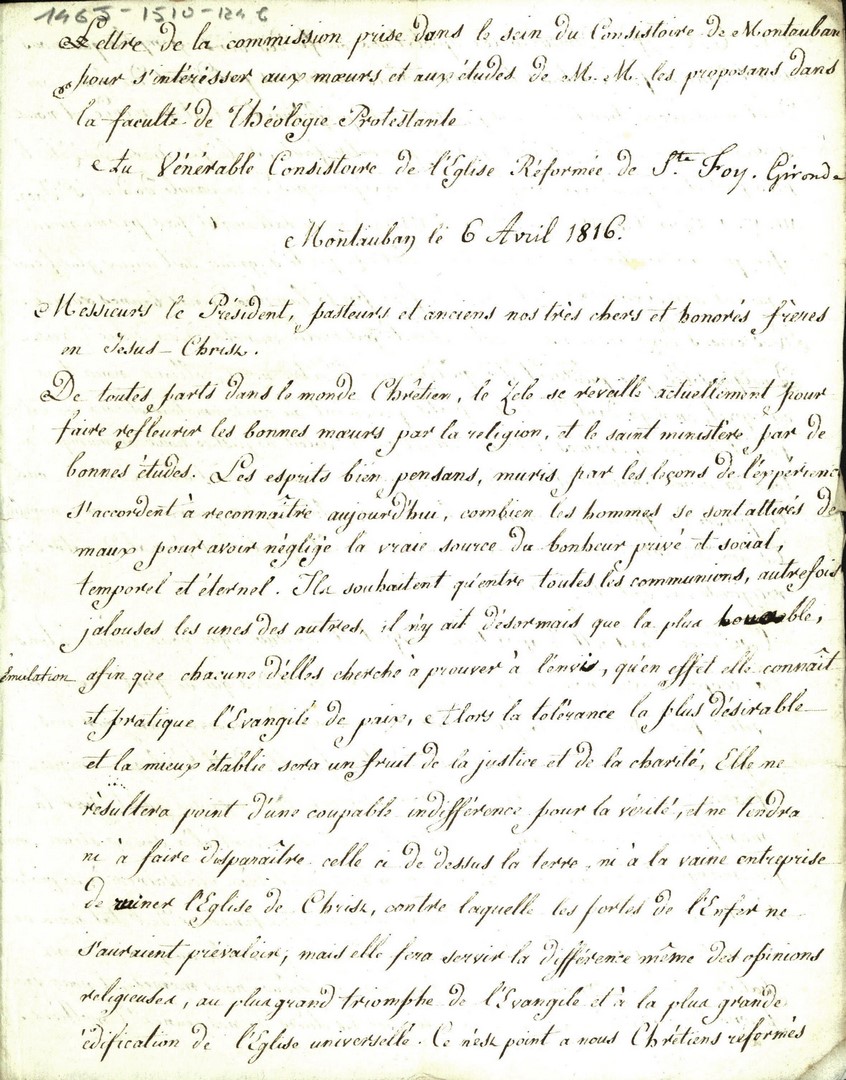 1465-1510-124 C
Lettre de la commission prise dans le sein du Consistoire de Montauban
pour s'intérésser aux mœurs et aux études de M. M. les proposans dans
la faculté de Théologie Protestante
Au Vénérable Consistoire de l'Eglise Réformée de Ste Foy. Gironde
Montauban le 6 Avril 1816.
Messieurs le Président, pasteurs et anciens nos très chers et honorés frères
en Jesus-Christ.
De toutes parts dans le monde Chrêtien, le Zele se réveille actuellement pour
faire refleurir les bonnes mœurs par la religion, et le saint ministère par de
bonnes études. Les esprits bien pensans, muris par les leçons de l'éxpérienc
s'accordent à reconnaître aujourd'hui, combien les hommes se sont attirés de
maux pour avoir négligé la vraie source du bonheur privé et social,
temporel et éternel. Ils souhaitent qu'entre toutes les communions, autrefois
jalouses les unes des autres, il n'y ait désormais que la plus louable,
émulation afin que chacune d'elles cherche à prouver à l'envi, qu'en effet elle connaît
et pratique l'Evangile de paix, Alors la tolérance la plus désirable
et la mieux établie sera un fruit de la justice et de la charité, Elle ne
résultera point d'une coupable indifférence pour la vérité, et ne tendra
ni à faire disparaître celle ci de dessus la terre, ni à la vaine entreprise
de miner l'Eglise de Christ, contre laquelle les portes de l'Enfer ne
s'auraient prévaloir, mais elle fera servir la différence même des opinions
religieuses, au plus grand triomphe de l'Evangile et à la plus grande
édification de l'Eglise universelle. Ce n'est point a nous Chrétiens réformés